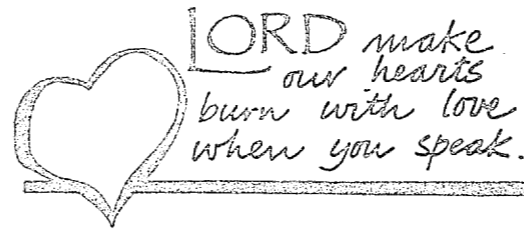 LORD make
our hearts
burn with love
when you speak.